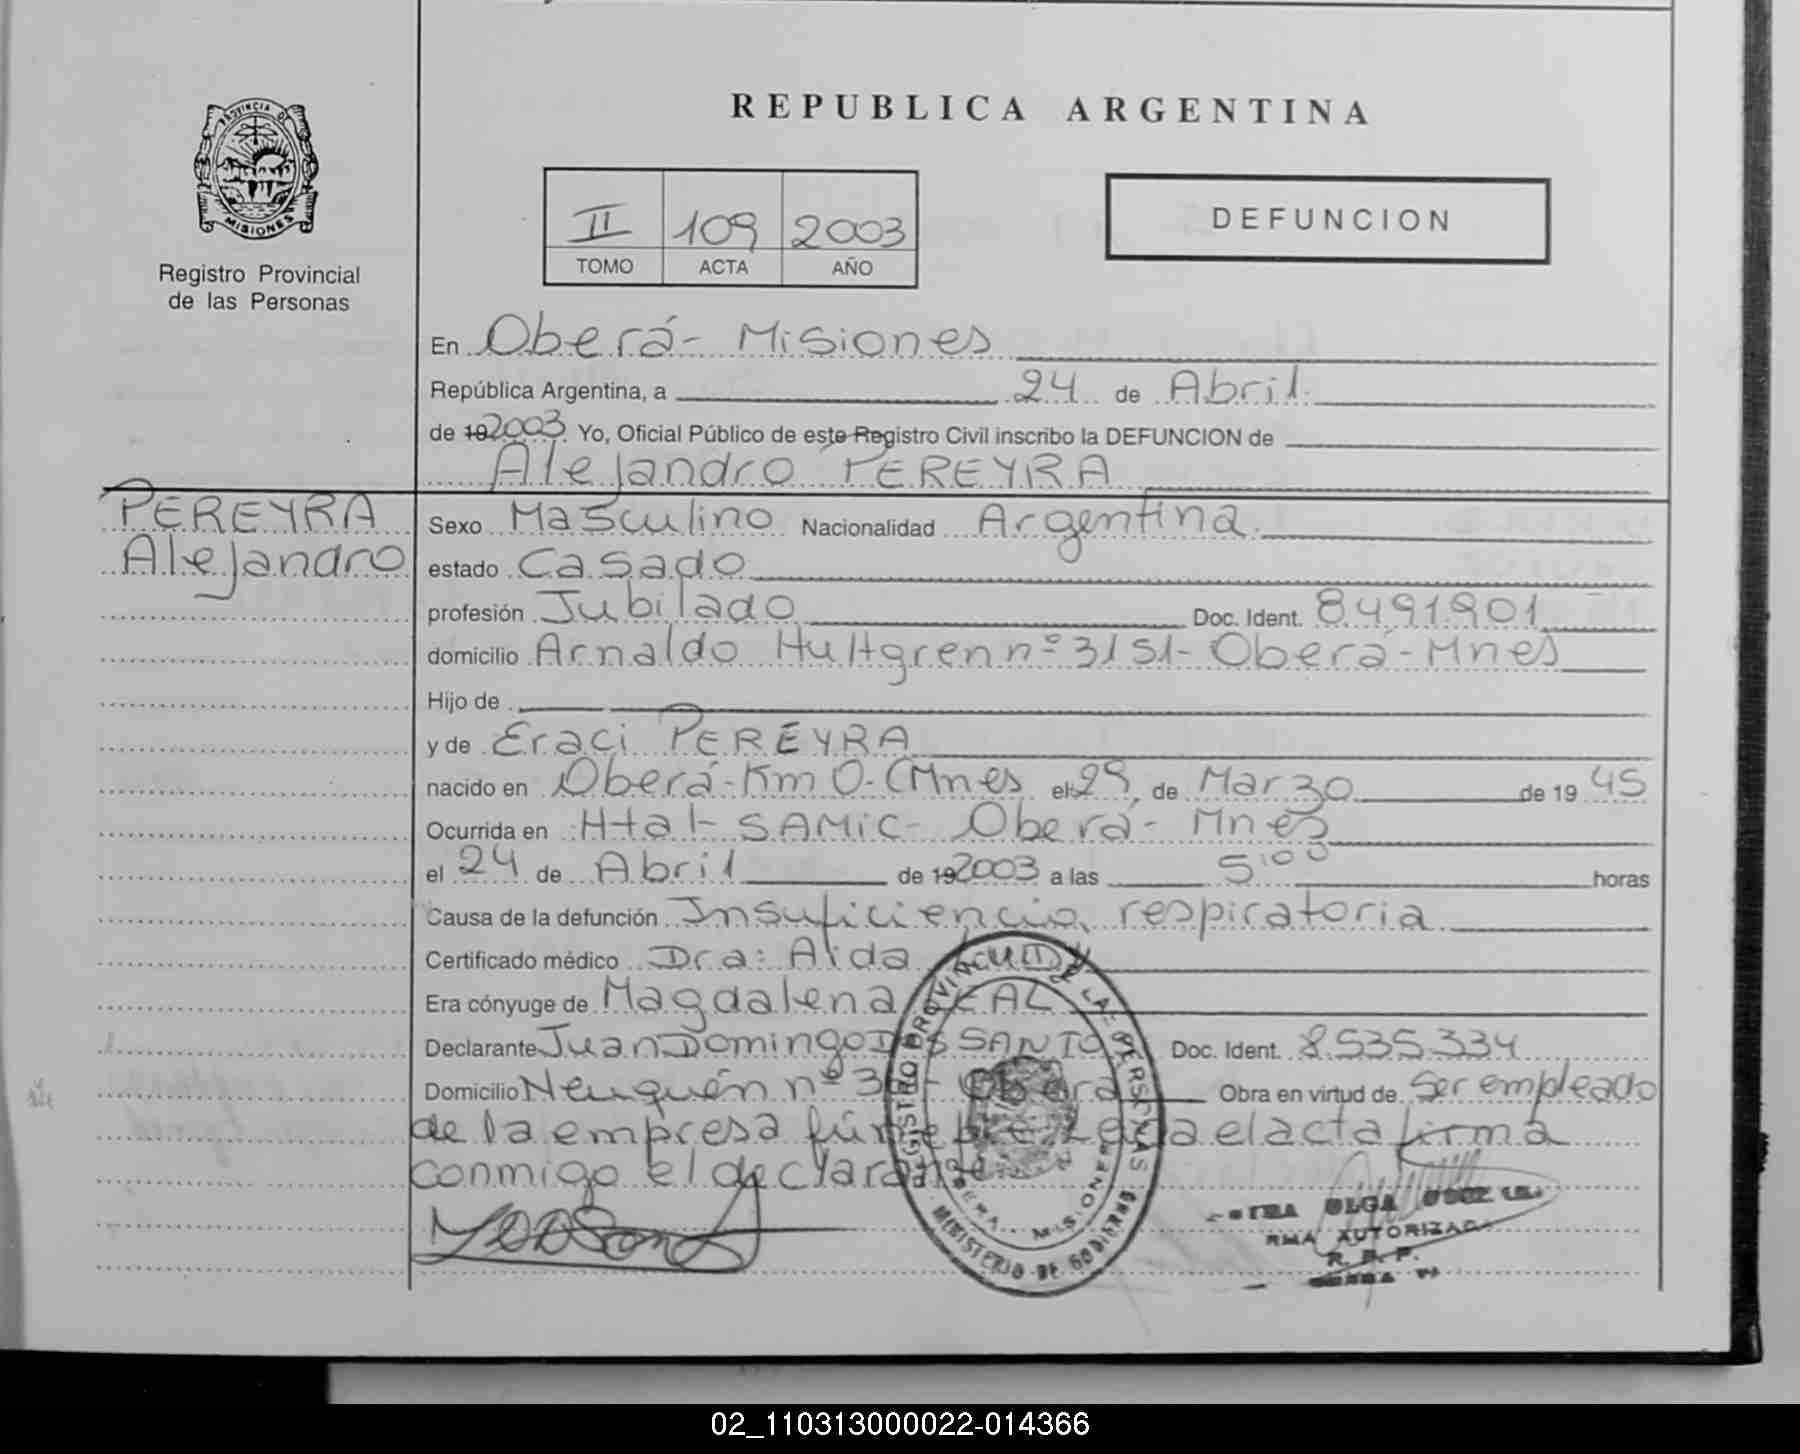 REPUBLICA ARGENTINA
PROVINCIA DE
MISIONES
Registro Provincial
de las Personas
II 109 2003
TOMO ACTA AÑO
DEFUNCION
En Oberá- Misiones
República Argentina, a 24 de Abril
de 19 2003. Yo, Oficial Público de este Registro Civil inscribo la DEFUNCION de
Alejandro PEREYRA
PEREYRA
Alejandro
Sexo Masculino Nacionalidad Argentina
estado Casado
profesión Jubilado Doc. Ident. 8491901
domicilio Arnaldo Hultgren nº 3151- Oberá- Mnes
Hijo de
y de Eraci PEREYRA
nacido en Oberá-Km 0-(Mnes el 29 de Marzo de 19 45
Ocurrida en Htal- SAMIC- Oberá- Mnes
el 24 de Abril de 19 2003 a las 5:00 horas
Causa de la defunción Insuficiencia respiratoria
Certificado médico Dra: Aida
Era cónyuge de Magdalena LEAL
Declarante Juan Domingo DOS SANTOS Doc. Ident. 8535334
Domicilio Neuquén nº Oberá Obra en virtud de Ser empleado
de la empresa fúnebre Leída el acta firma
conmigo el declarante
REGISTRO PROVINCIAL DE LAS PERSONAS
OBERA - MISIONES
MINISTERIO DE GOBIERNO
OLGA
AUTORIZADA
R. P. P.
02_110313000022-014366